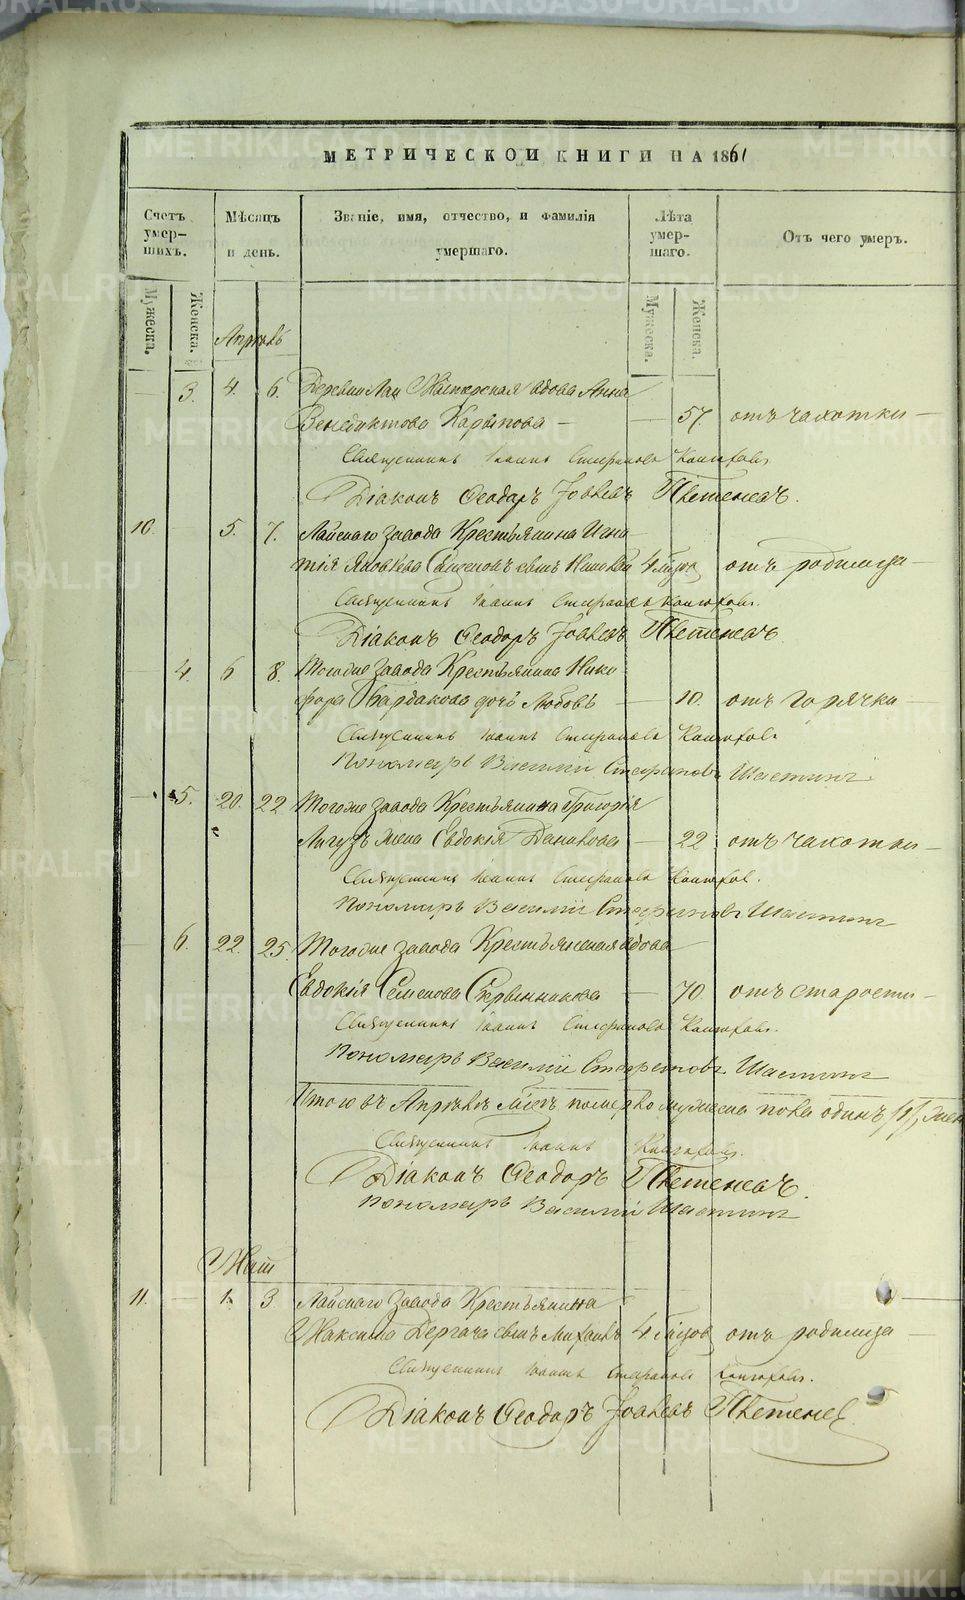 МЕТРИЧЕСКОЙ КНИГИ НА 1861
Счетъ умер-шихъ.
Мѣсяцъ и день.
Званіе, имя, отчество, и фамилія умершаго.
Лѣта умер-шаго.
Отъ чего умеръ.
Мужеска. Женска.
Мужеска. Женска.
Апрѣль
3. 4. 6. Деревни Лаи Мастерская вдова Анна
Венедиктова Карыпова — — 57. отъ чахотки —
Священникъ Іоаннъ Стефановъ
Діаконъ Ѳеодоръ Іовлевъ
10. 5. 7. Лайскаго завода Крестьянина Игна
тія Яковлева сынъ 4 отъ родимца —
Священникъ Іоаннъ Стефановъ
Діаконъ Ѳеодоръ Іовлевъ
4. 6 8. Тогоже завода Крестьянина Ники
фора Бардакова дочь Любовь — 10. отъ горячки —
Священникъ Іоаннъ Стефановъ
Пономарь Василій Стефановъ Шастинъ
5. 20. 22 Тогоже завода Крестьянина Григорія
жена Евдокія — 22 отъ чахотки —
Священникъ Іоаннъ Стефановъ
Пономарь Василій Стефановъ Шастинъ
6. 22. 25. Тогоже завода Крестьянская вдова
Евдокія Семенова — 70. отъ старости —
Священникъ Іоаннъ Стефановъ
Пономарь Василій Стефановъ Шастинъ
Итого въ Апрѣлѣ м-цѣ померло мужеска пола одинъ /1/,
Священникъ Іоаннъ
Діаконъ Ѳеодоръ
Пономарь Василій Шастинъ
Маій
11. — 1. 3. Лайскаго завода Крестьянина
Максима Дергача сынъ Михаилъ 4 отъ родимца —
Священникъ Іоаннъ Стефановъ
Діаконъ Ѳеодоръ Іовлевъ
METRIKI.GASO-URAL.RU